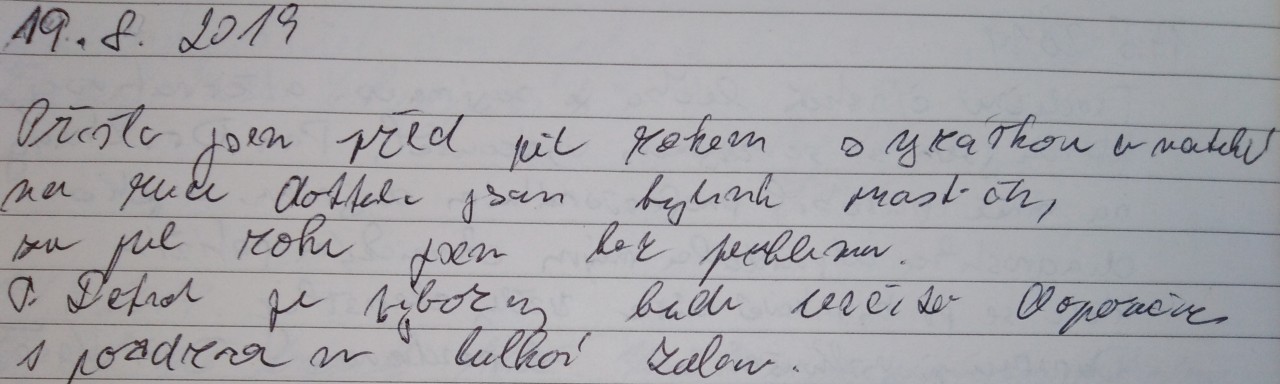 19. 8. 2019
Přišla jsem před půl rokem s vyrážkou
na ruce dostala jsem bylink mast
za půl roku jsem bez problemu.
P. Dehol je výborný budu určitě doporučov
s pozdravem